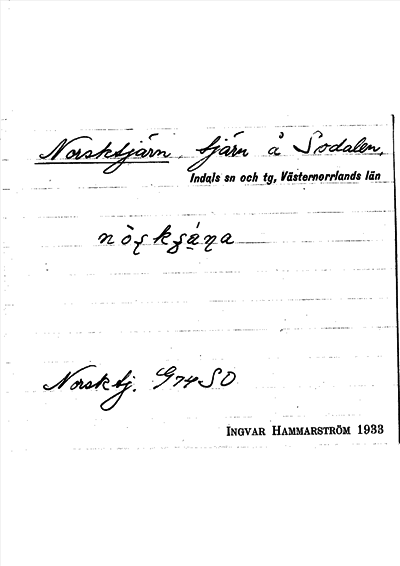 Norsktjärn, tjärn å Sodalen,
Indals sn och tg, Västernorrlands län
Norsktj. G74SO
INGVAR HAMMARSTRÖM 1933